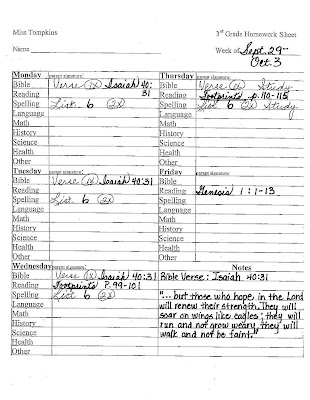 Miss Tompkins 3rd Grade Homework Sheet
Name Week of Sept. 29-
Oct. 3
Monday parent signature:
Bible Verse (1x) Isaiah 40:
Reading 31
Spelling List 6 (2x)
Language
Math
History
Science
Health
Other
Thursday parent signature:
Bible Verse (1x) Study
Reading Footprints p. 110-115
Spelling List 6 (2x) Study
Language
Math
History
Science
Health
Other
Tuesday parent signature:
Bible Verse (1x) Isaiah 40:31
Reading
Spelling List 6 (2x)
Language
Math
History
Science
Health
Other
Friday parent signature:
Bible
Reading Genesis 1:1-13
Spelling
Language
Math
History
Science
Health
Other
Wednesday parent signature:
Bible Verse (1x) Isaiah 40:31
Reading Footprints P. 99-101
Spelling List 6 (2x)
Language
Math
History
Science
Health
Other
Notes
Bible Verse: Isaiah 40:31
"...but those who hope in the Lord
will renew their strength. They will
soar on wings like eagles; they will
run and not grow weary, they will
walk and not be faint."